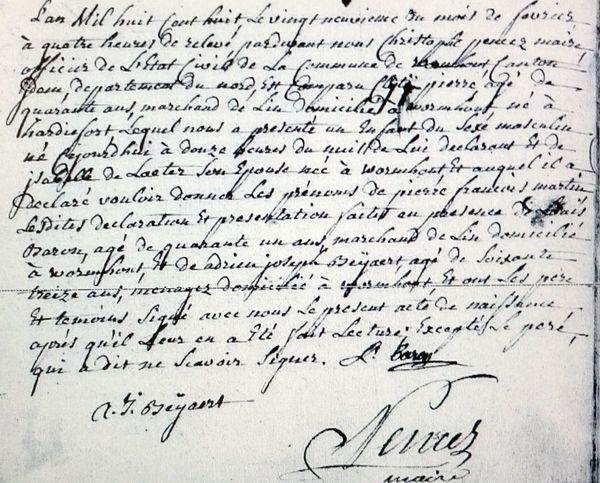 L'an Mil huit Cent huit Le vingt neuvieme du mois de fevrier
à quatre heures de relevé, pardevant nous Christophe maire,
officier de L'Etat Civil de La Commune de wormhout Canton
Idem, departement du nord Est Comparu pierre, agé de
quarante ans, marchand de Lin domicilié à wormhout, né à
hardifort, Lequel nous a presenté un Enfant du Sexe masculin
né cejourd'hui à douze heures du nuit de Lui declarant Et de
isabelle de Laeter Son Epouse née à wormhout Et auquel il a
Declaré vouloir donner Les prénoms de pierre francois martin
Lesdites declaration Et presentation faites en presence de Louis
Baron, agé de quarante un ans, marchand de Lin domicilié
à wormhout Et de adrien joseph Beÿaert agé de Soixante
treize ans, menager domicilié à wormhout Et ont Les pere
Et temoins Signé avec nous Le present acte de naissance
après qu'il Leur en a Eté fait Lecture. Excepté Le peré,
qui a dit ne Scavoir Signer. L. Baron
A. J. Beÿaert
maire